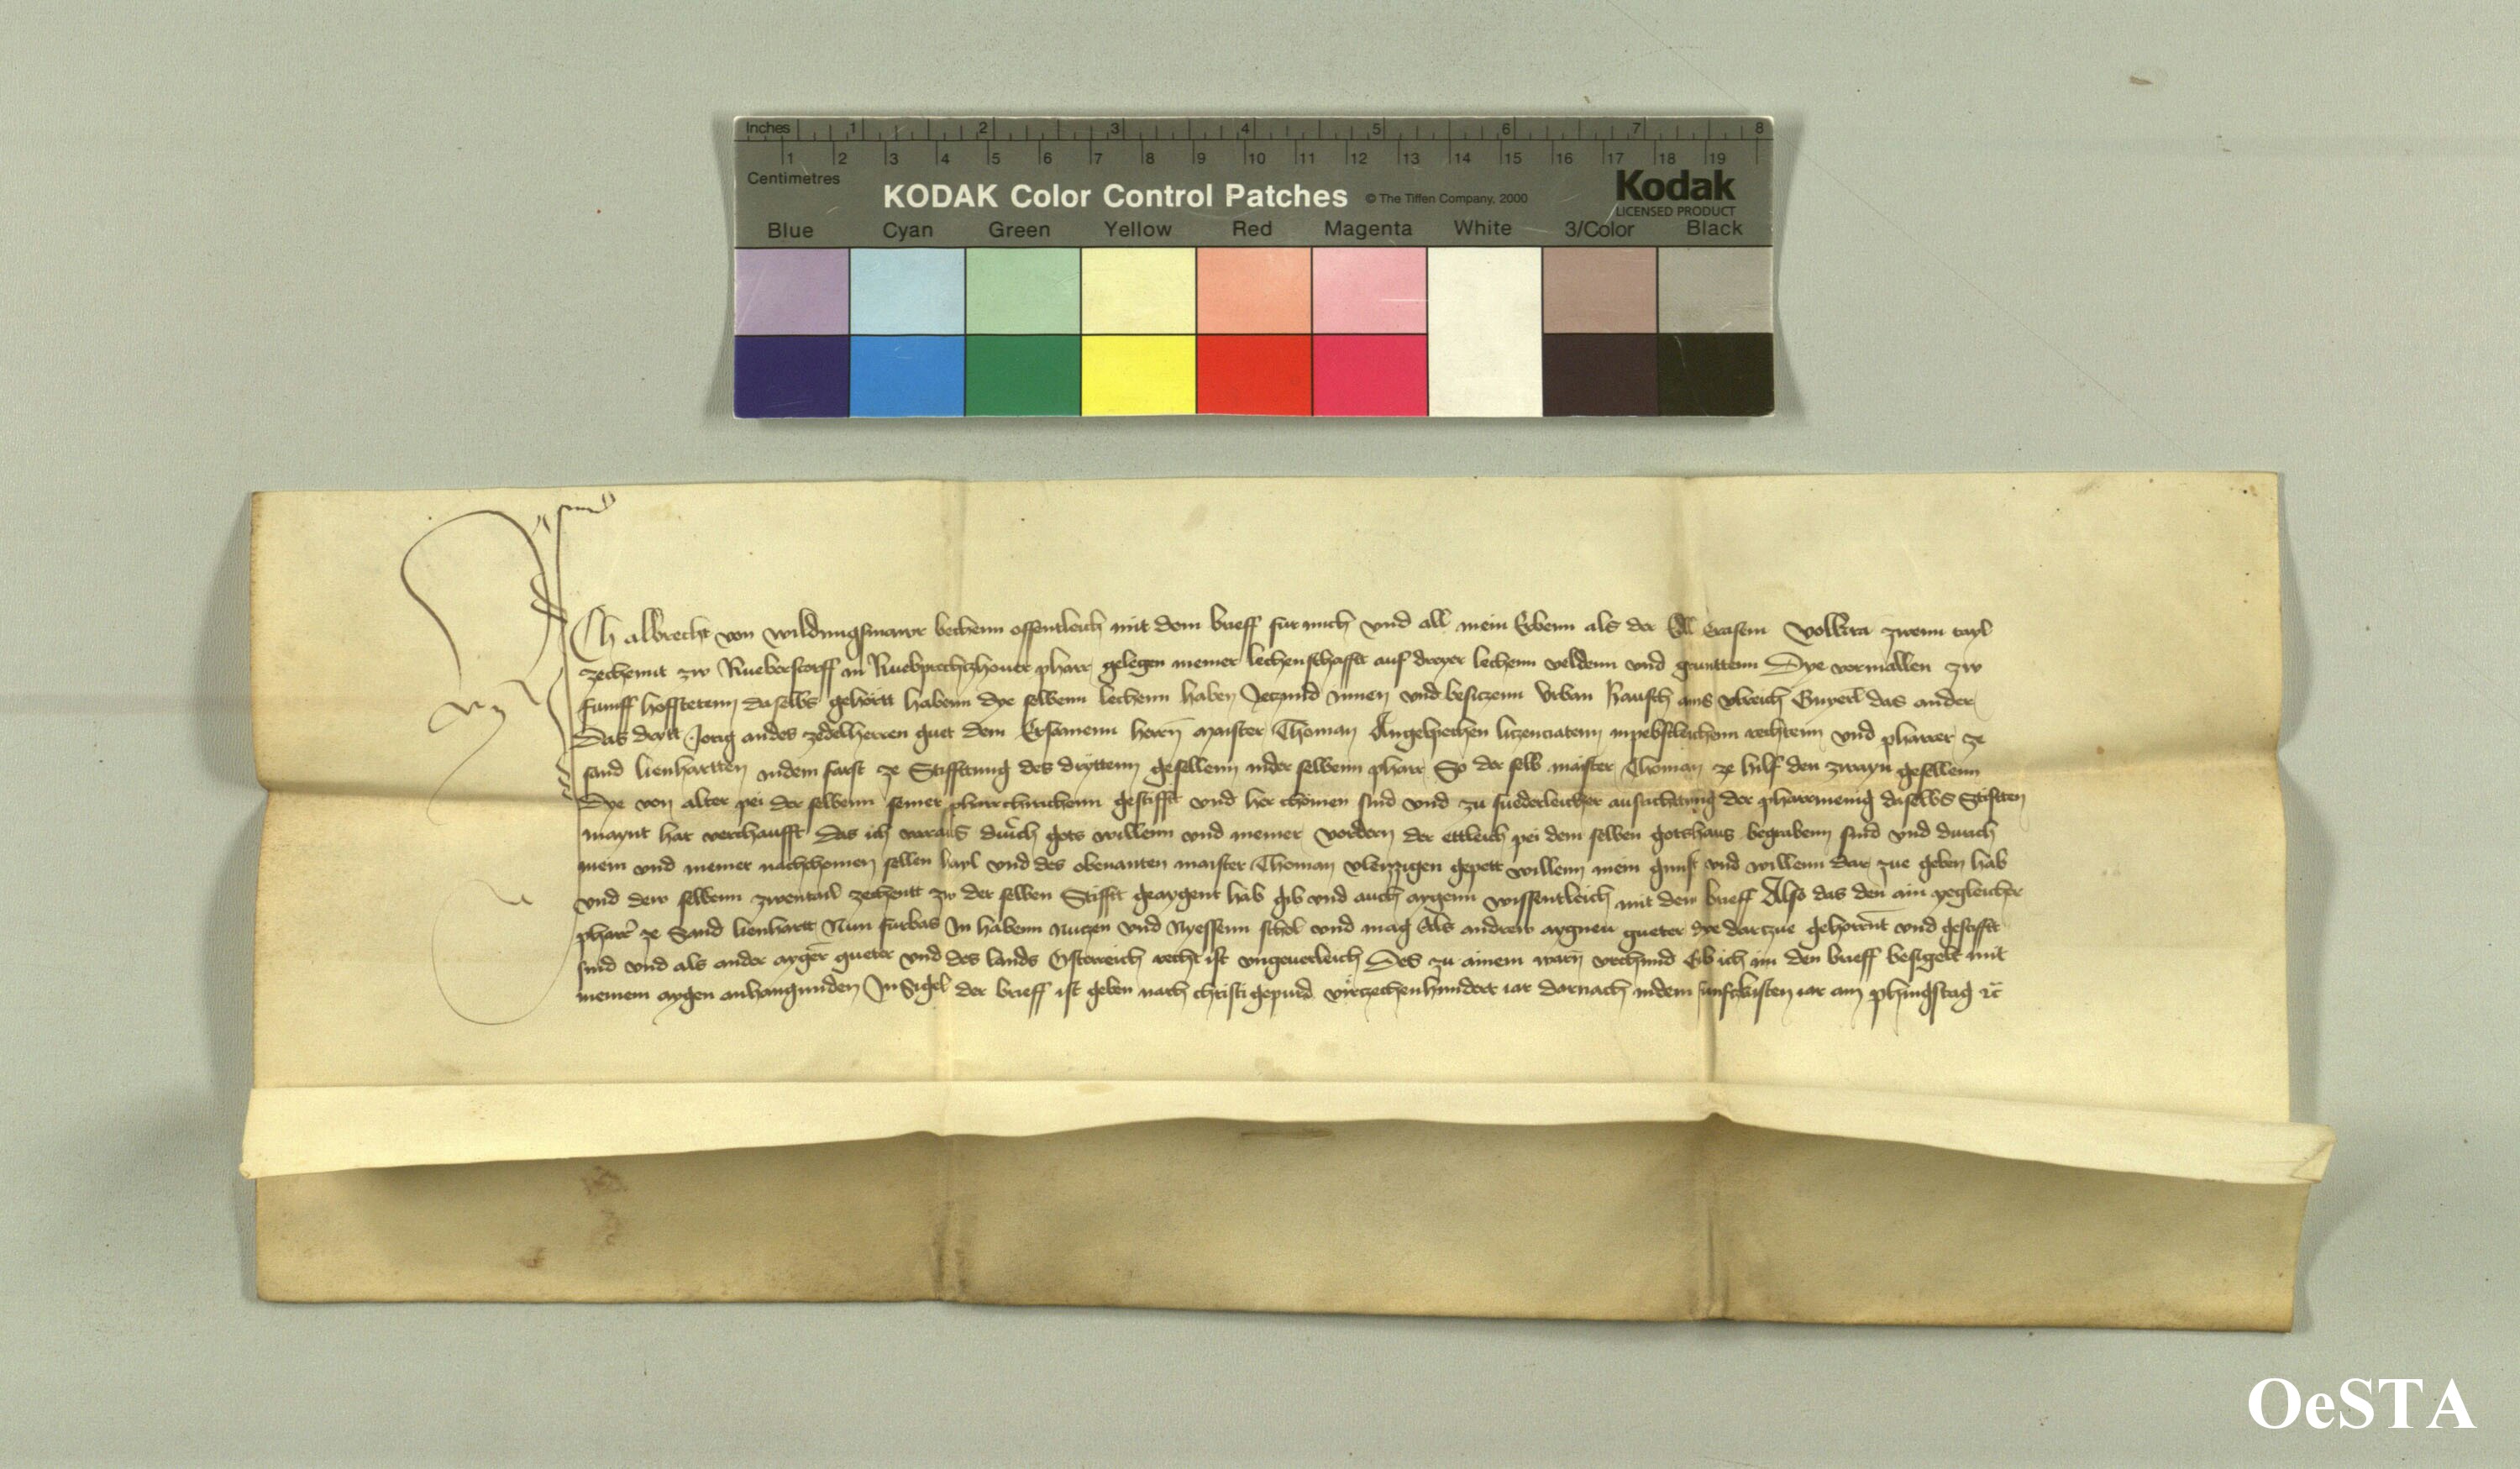 Inches 1 2 3 4 5 6 7 8
1 2 3 4 5 6 7 8 9 10 11 12 13 14 15 16 17 18 19
Centimetres
KODAK Color Control Patches © The Tiffen Company, 2000 Kodak
LICENSED PRODUCT
Blue Cyan Green Yellow Red Magenta White 3/Color Black
ICh albrecht von wildungsmawr bechenn offentleich mit dem brieff fur mich vnd all mein Erbenn als der Edl Erasem Volkra zwenn tayl
zechennt zw Rueberstorff in Ruebprechtzhouer pharr gelegen meiner lechenschafft auf dreyer lechenn veldenn vnd grunttenn Dye vormallen zw
funff hoffstetenn daselbs gehortt habenn dye selbenn lechenn haben Jetzund Innen vnd besitzenn Vrban Rausch ains Vlreich das ander
Das drytt Jorig andes zedelherren guet dem Ersamenn herrn maister Thoman licenciatenn inpebstleichenn rechtenn vnd pharrer ze
sand lienhartten indem farst ze Stifftung des dryttenn gesellenn inder selbenn pharr So der selb maister Thoman ze hilf den zwayn gesellenn
Dye von alter pei der selbenn seiner pharrchirichenn gestifft vnd her chomen sind vnd zu fuederleicher ausrichtung der pharrmenig daselbs Stiften
maynt hat verchaufft Das ich voraus durch gots willenn vnd meiner vordern der ettleich pei dem selben gotshaus begrabenn sind vnd durich
mein vnd meiner nachchomen sellen hayl vnd des obenanten maister Thoman vleyzzigen gepett willenn mein gunst vnd willenn dar zue geben hab
vnd dew selbenn zwentail zechentt zw der selben Stifft geaygent hab gib vnd auch aygenn wissentleich mit dem brieff Also das den ain yegleicher
pharrer ze Sand lienhartt Nun furbas In habenn nutzen vnd Nyessenn schol vnd mag Als andrew aygnew gueter dye dartzue gehorrnt vnd gestifft
sind vnd als ander aygen gueter vnd des lands Osterreich recht ist vngeuerleich Des zu ainem warn vrchund Gib ich im den brieff besigelt mit
meinem aygen anhangunden Insigel der brieff ist geben nach christi gepurd virczechenhundert iar darnach indem iar am phingstag
OeSTA